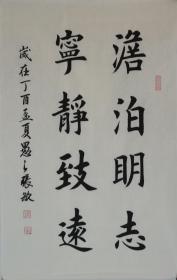 澹泊明志
寧靜致遠
歲在丁酉孟夏愚之張敏